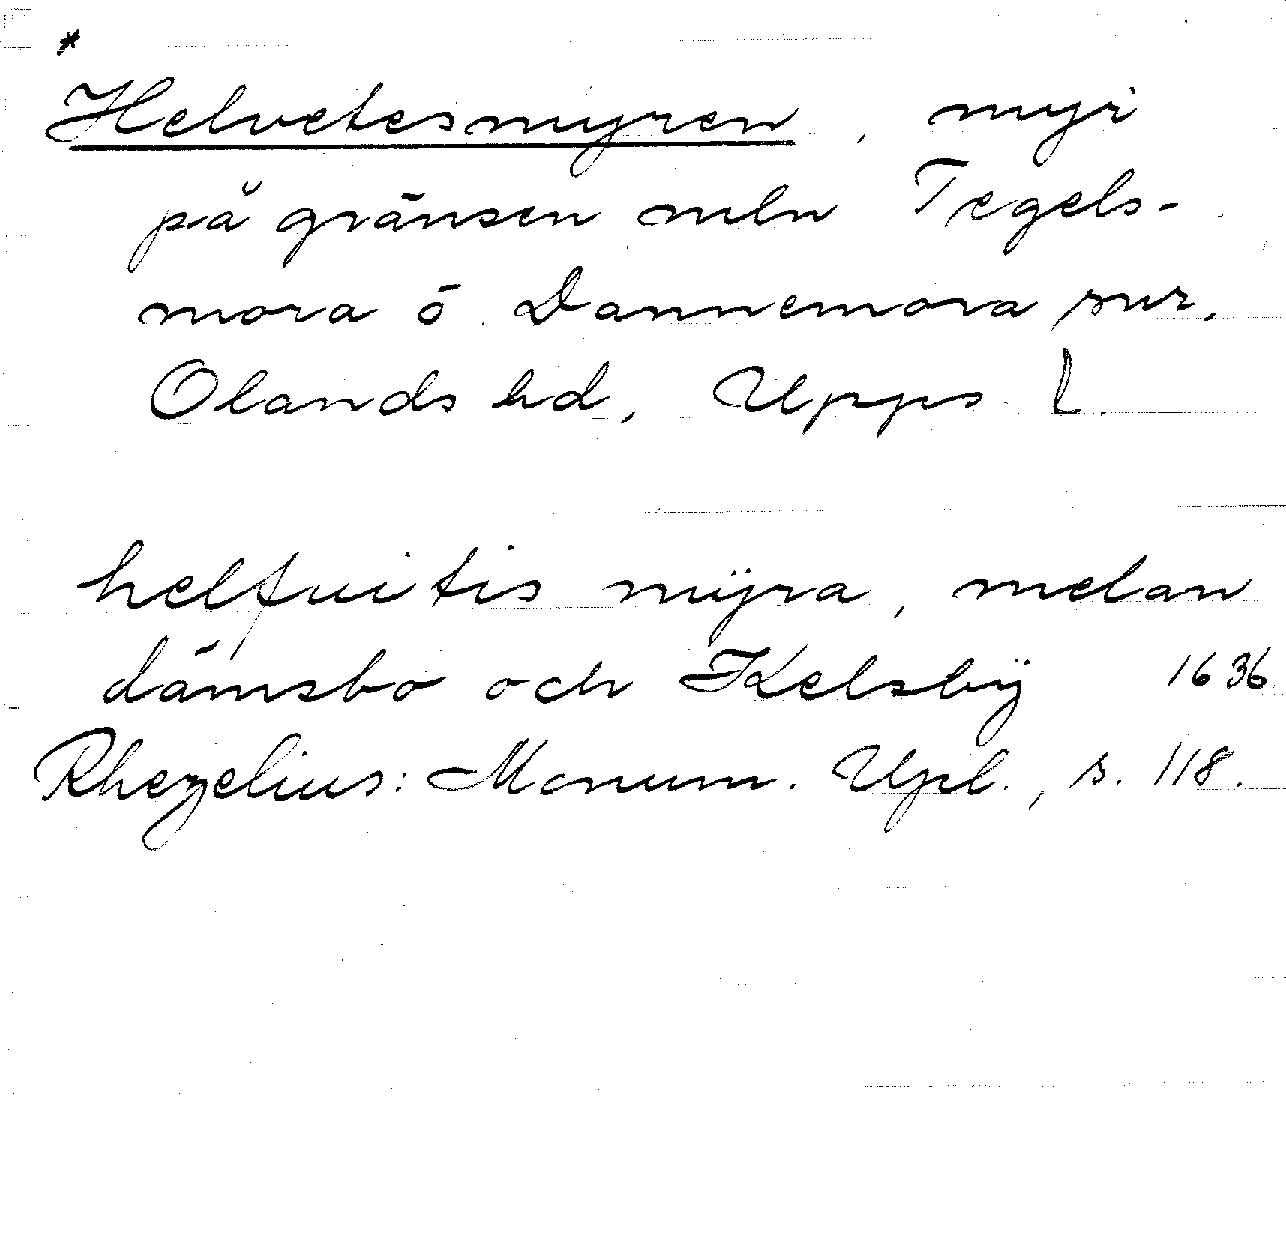 *
Helvetesmyren, myr
på gränsen mln Tegels-
mora o Dannemora snr,
Olands hd, Upps. L.
helfuitis mÿra, melan
dämsbo och Kelsbÿ 1636
Rhezelius: Monum. Upl., s. 118.